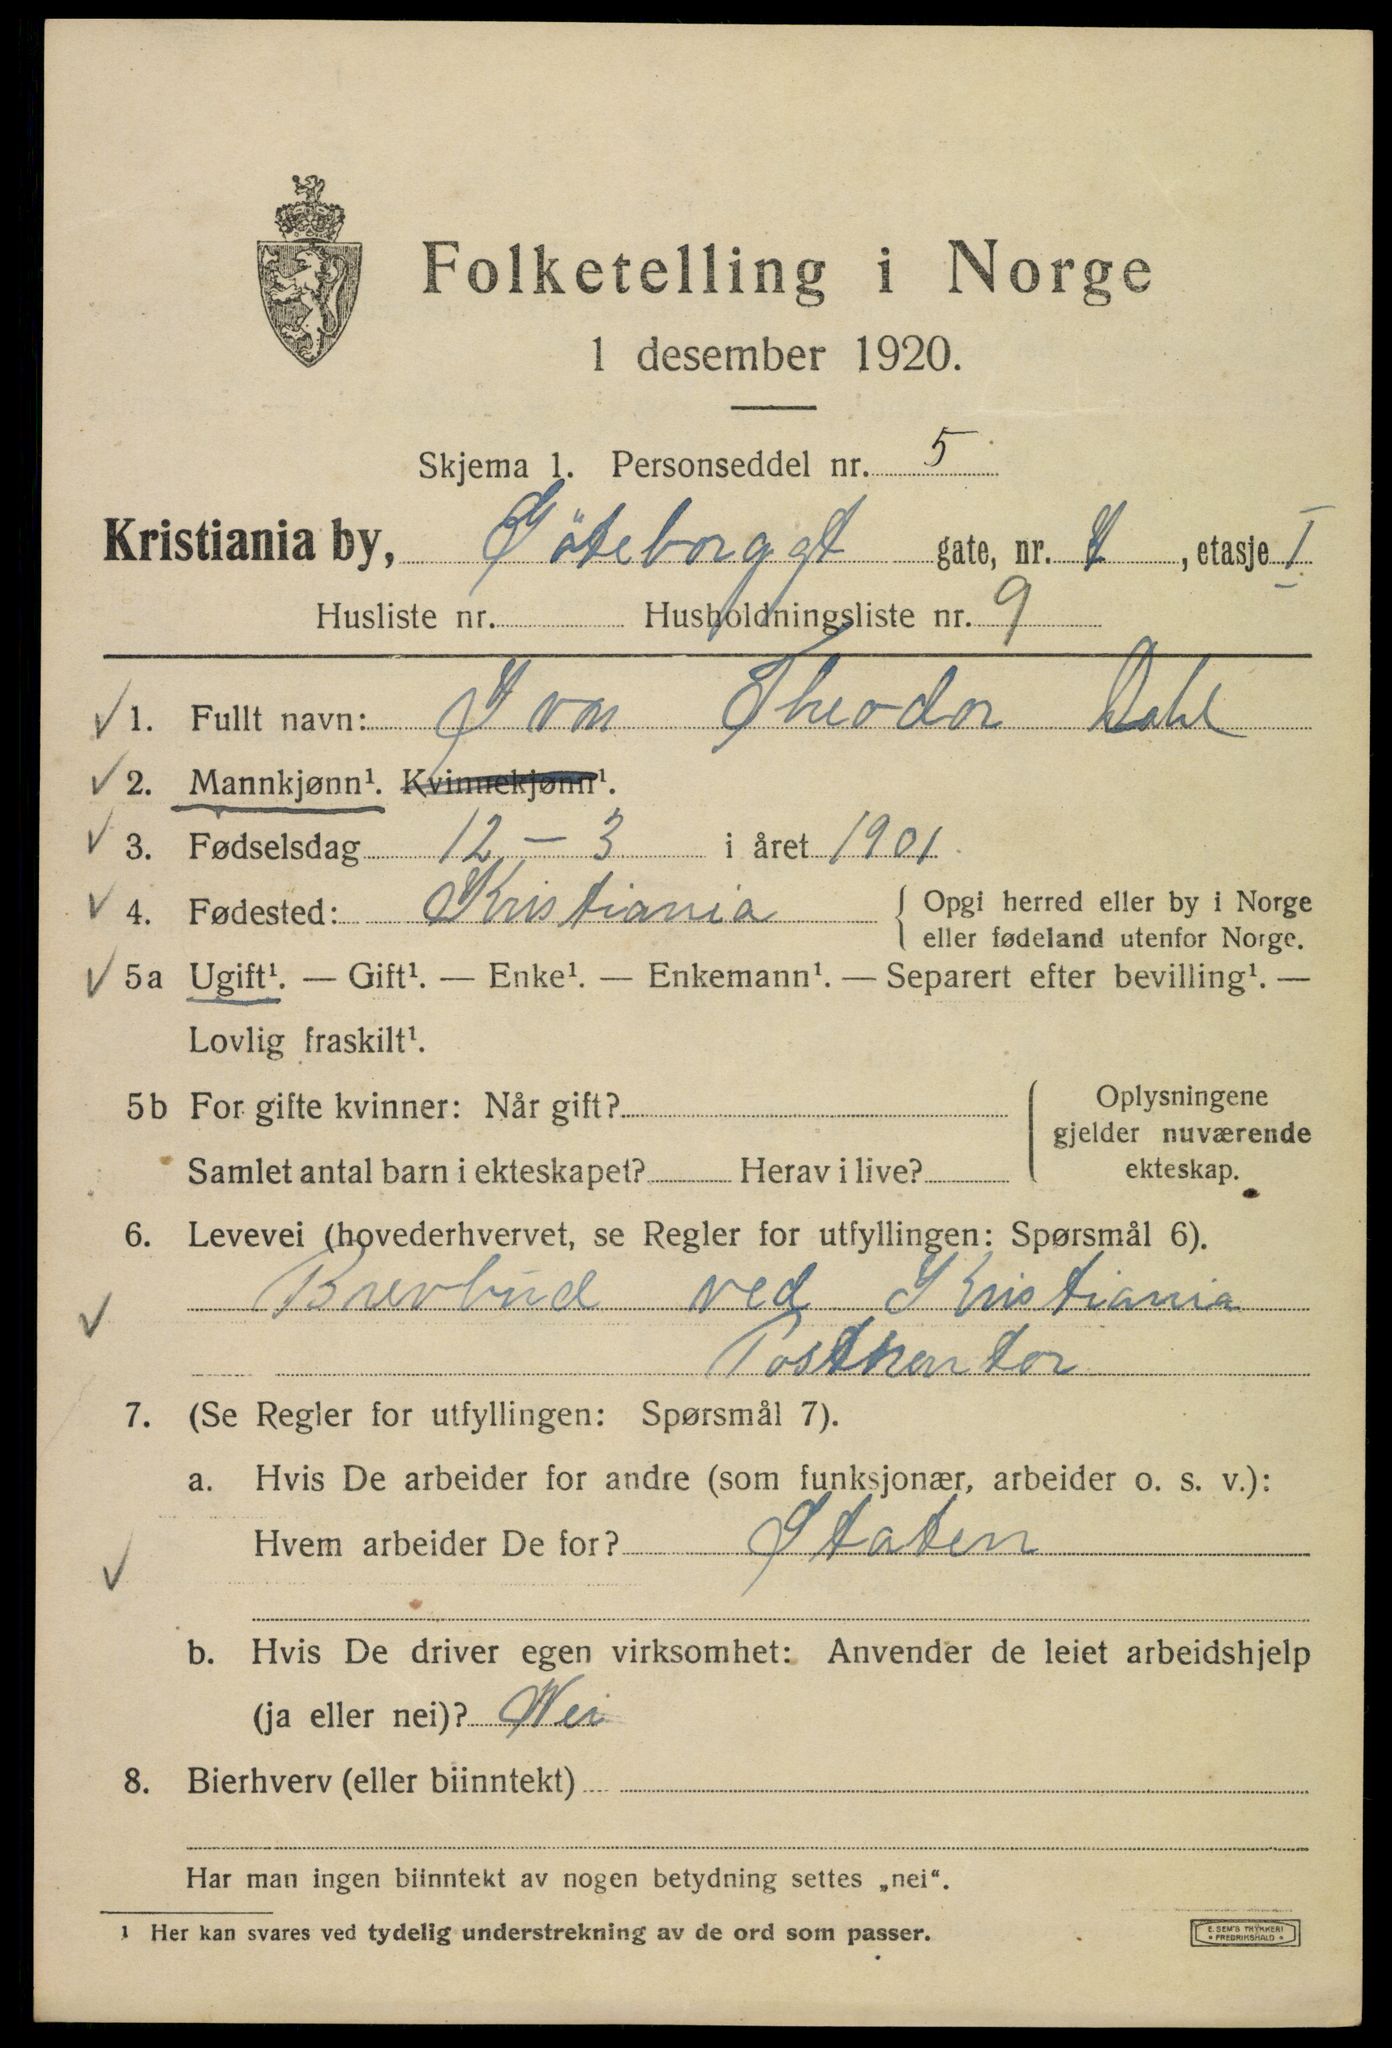 Folketelling i Norge
1 desember 1920.
Skjema 1. Personseddel nr. 5
Kristiania by, Göteborggt gate, nr. , etasje I
Husliste nr. Husholdningsliste nr. 9
1. Fullt navn: Ivar Theodor Dahl
2. Mannkjønn¹. Kvinnekjønn¹.
3. Fødselsdag 12 – 3 i året 1901
4. Fødested: Kristiania { Opgi herred eller by i Norge
eller fødeland utenfor Norge.
5a Ugift¹. — Gift¹. — Enke¹. — Enkemann¹. — Separert efter bevilling¹. —
Lovlig fraskilt¹.
5b For gifte kvinner: Når gift? Oplysningene
gjelder nuværende
Samlet antal barn i ekteskapet? Herav i live? ekteskap.
6. Levevei (hovederhvervet, se Regler for utfyllingen: Spørsmål 6).
Brevbud ved Kristiania
Postkontor
7. (Se Regler for utfyllingen: Spørsmål 7).
a. Hvis De arbeider for andre (som funksjonær, arbeider o. s. v.):
Hvem arbeider De for? Staten
b. Hvis De driver egen virksomhet: Anvender de leiet arbeidshjelp
(ja eller nei)? Nei
8. Bierhverv (eller biinntekt)
Har man ingen biinntekt av nogen betydning settes „nei“.
1 Her kan svares ved tydelig understrekning av de ord som passer.
E. SEM'S TRYKKERI
• FREDRIKSHALD •